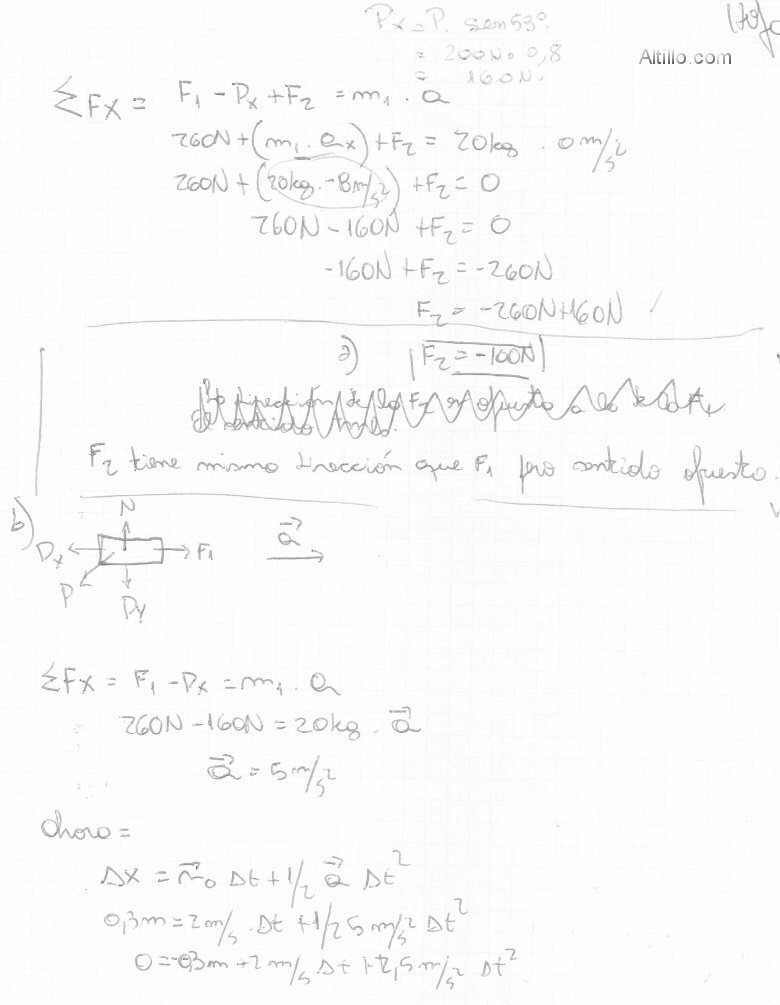 Px = P. sen 53º
= 200N . 0,8
= 160N.
Altillo.com
ΣFx = F₁ - Px + F₂ = m₁ . a
260N + (m₁ . ax) + F₂ = 20kg . 0 m/s²
260N + (20kg . -8m/s²) + F₂ = 0
260N - 160N + F₂ = 0
-160N + F₂ = -260N
F₂ = -260N + 160N
a) F₂ = -100N
F₂ tiene misma dirección que F₁ pero sentido opuesto.
b)
N
Px F₁ a⃗
P
Py
ΣFx = F₁ - Px = m₁ . a
260N - 160N = 20kg . a⃗
a⃗ = 5 m/s²
ahora =
Δx = v⃗₀ Δt + 1/2 a⃗ Δt²
0,3m = 2m/s . Δt + 1/2 5 m/s² Δt²
0 = -0,3m + 2 m/s Δt + 2,5 m/s² Δt²